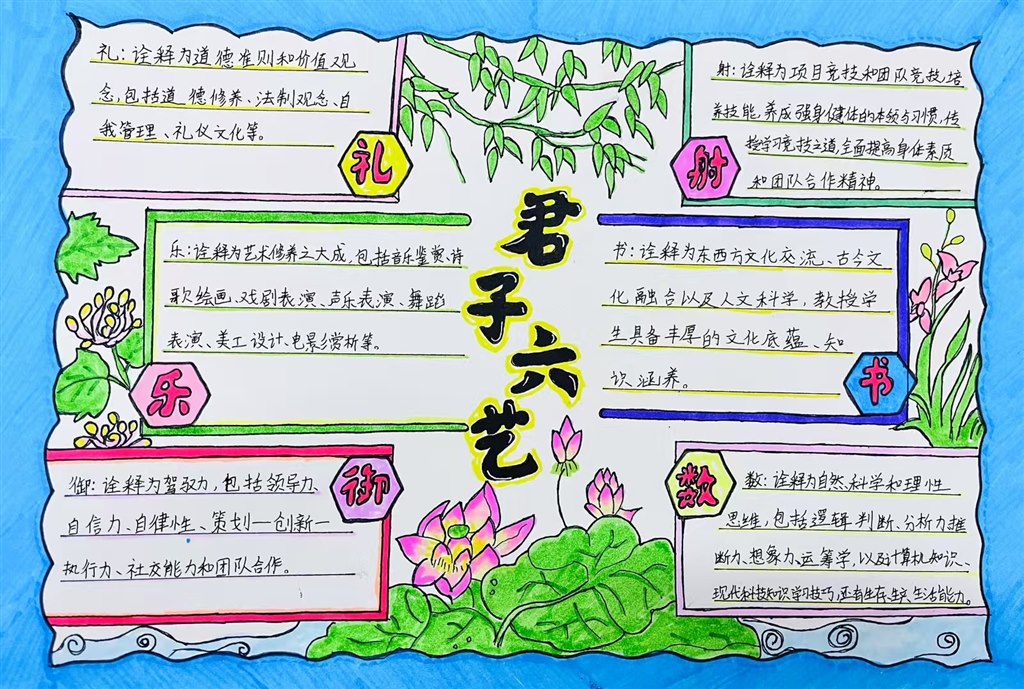 君子六艺
礼:诠释为道德准则和价值观
念,包括道德修养、法制观念、自
我管理、礼仪文化等。
礼
射:诠释为项目竞技和团队竞技,培
养技能,养成强身健体的本领与习惯,传
授学习竞技之道,全面提高身体素质
和团队合作精神。
射
乐:诠释为艺术修养之大成,包括音乐鉴赏、诗
歌绘画、戏剧表演、声乐表演、舞蹈
表演、美工设计、电影赏析等。
乐
书:诠释为东西方文化交流、古今文
化融合以及人文科学,教授学
生具备丰厚的文化底蕴、知
识涵养。
书
御:诠释为驾驭力,包括领导力、
自信力、自律性、策划一创新一
执行力、社交能力和团队合作。
御
数:诠释为自然、科学和理性
思维,包括逻辑判断、分析力推
断力、想象力、运筹学,以及计算机知识、
现代科技知识学习技巧,还有生存、生产、生活能力。
数